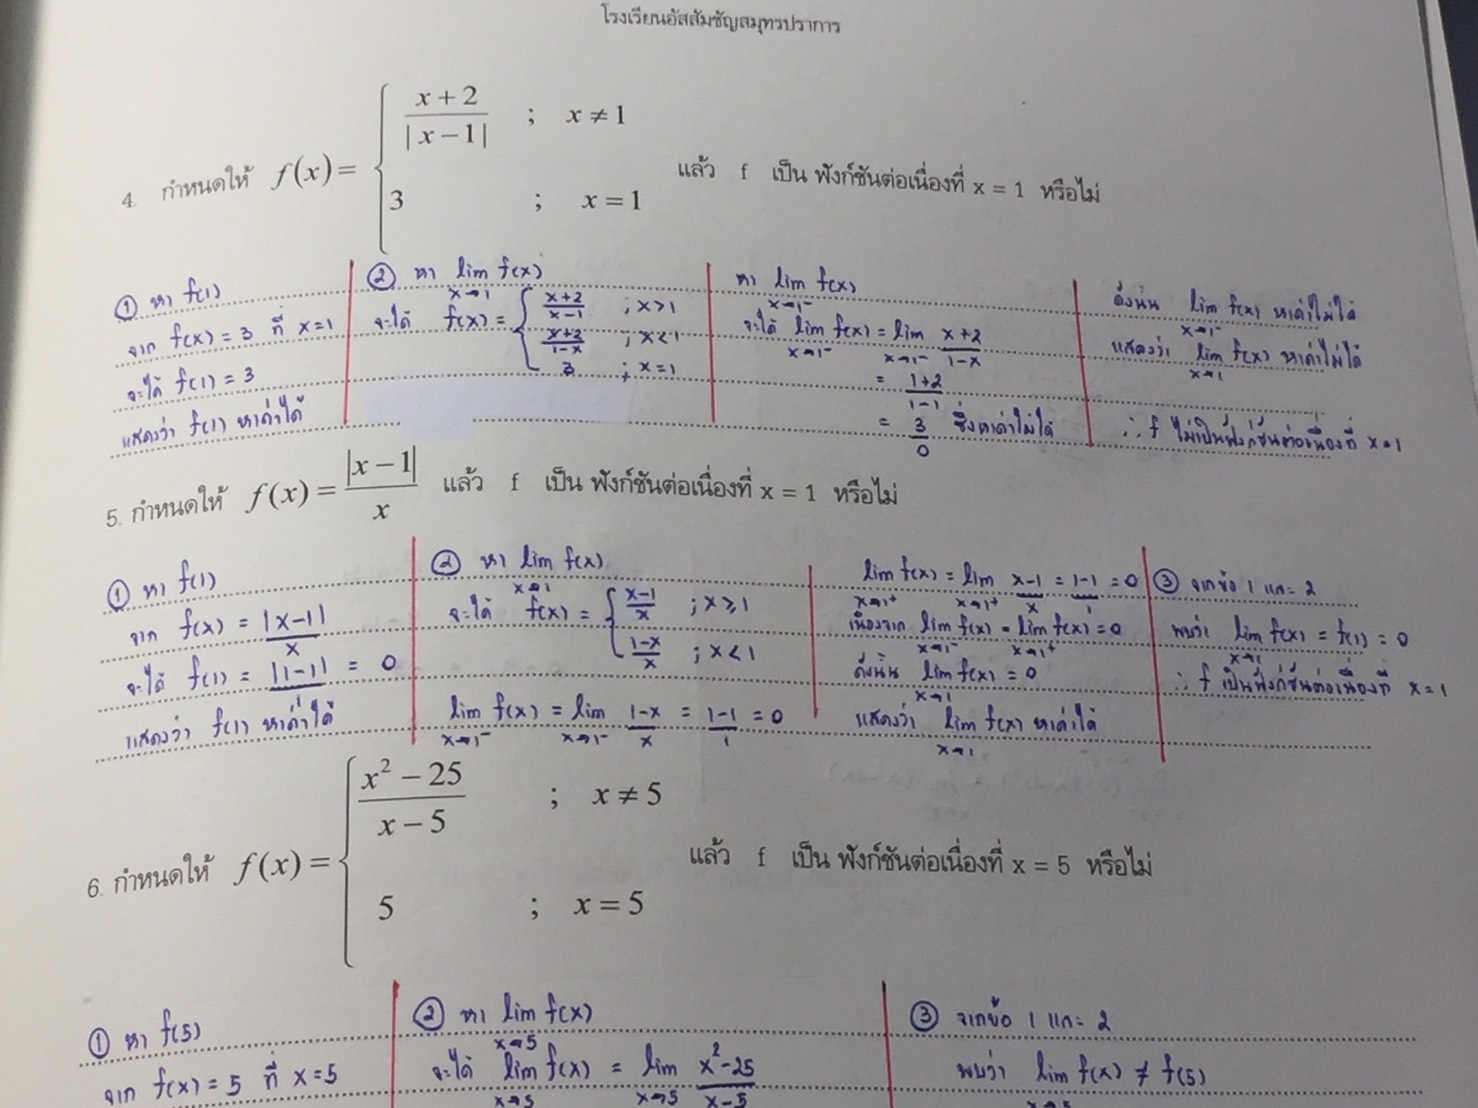 โรงเรียนอัสสัมชัญสมุทรปราการ
4. กำหนดให้ f(x) = { (x+2)/|x-1| ; x ≠ 1
3 ; x = 1
แล้ว f เป็น ฟังก์ชันต่อเนื่องที่ x = 1 หรือไม่
① หา f(1)
จาก f(x) = 3 ที่ x=1
จะได้ f(1) = 3
แสดงว่า f(1) หาค่าได้
② หา lim x→1 f(x)
จะได้ f(x) = { (x+2)/(x-1) ; x>1
(x+2)/(1-x) ; x<1
3 ; x=1
หา lim x→1⁻ f(x)
จะได้ lim x→1⁻ f(x) = lim x→1⁻ (x+2)/(1-x)
= (1+2)/(1-1)
= 3/0 ซึ่งหาค่าไม่ได้
ดังนั้น lim x→1⁻ f(x) หาค่าไม่ได้
แสดงว่า lim x→1 f(x) หาค่าไม่ได้
∴ f ไม่เป็นฟังก์ชันต่อเนื่องที่ x=1
5. กำหนดให้ f(x) = |x-1|/x แล้ว f เป็น ฟังก์ชันต่อเนื่องที่ x = 1 หรือไม่
① หา f(1)
จาก f(x) = |x-1|/x
จะได้ f(1) = |1-1|/1 = 0
แสดงว่า f(1) หาค่าได้
② หา lim x→1 f(x)
จะได้ f(x) = { (x-1)/x ; x≥1
(1-x)/x ; x<1
lim x→1⁻ f(x) = lim x→1⁻ (1-x)/x = (1-1)/1 = 0
lim x→1⁺ f(x) = lim x→1⁺ (x-1)/x = (1-1)/1 = 0
เนื่องจาก lim x→1⁻ f(x) = lim x→1⁺ f(x) = 0
ดังนั้น lim x→1 f(x) = 0
แสดงว่า lim x→1 f(x) หาค่าได้
③ จากข้อ 1 และ 2
พบว่า lim x→1 f(x) = f(1) = 0
∴ f เป็นฟังก์ชันต่อเนื่องที่ x = 1
6. กำหนดให้ f(x) = { (x² - 25)/(x - 5) ; x ≠ 5
5 ; x = 5
แล้ว f เป็น ฟังก์ชันต่อเนื่องที่ x = 5 หรือไม่
① หา f(5)
จาก f(x) = 5 ที่ x=5
② หา lim x→5 f(x)
จะได้ lim x→5 f(x) = lim x→5 (x²-25)/(x-5)
③ จากข้อ 1 และ 2
พบว่า lim x→5 f(x) ≠ f(5)